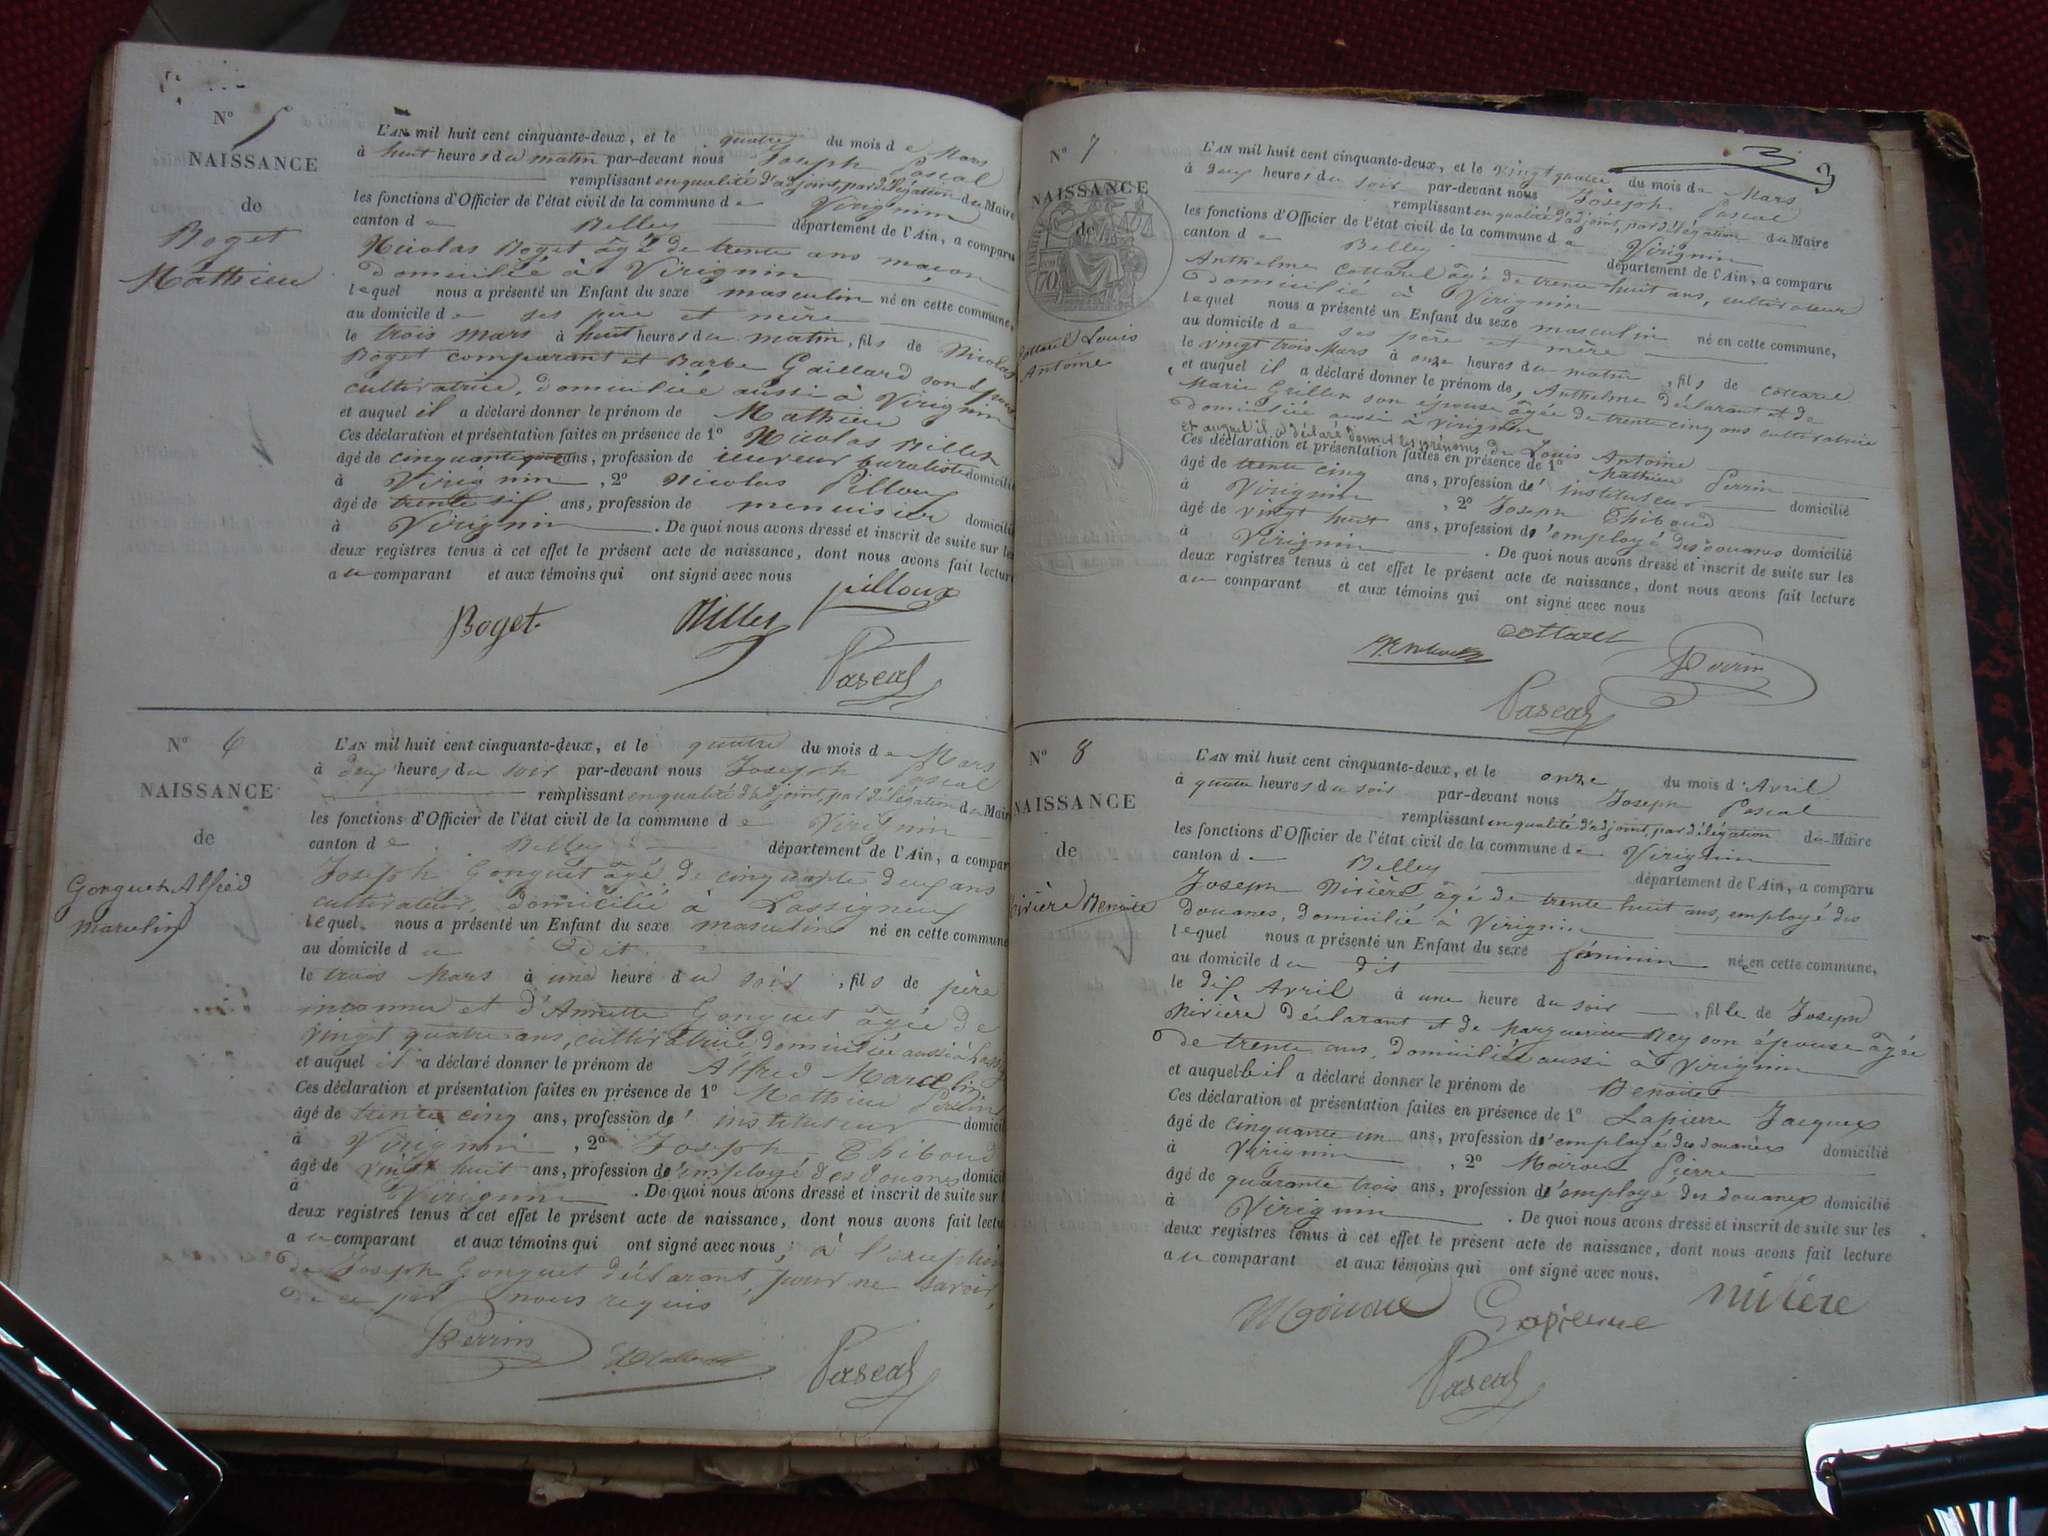 N° 5
NAISSANCE
de
Boget
Mathieu
L'AN mil huit cent cinquante-deux, et le quatre du mois de Mars
à huit heures du matin par-devant nous Joseph Pascal
remplissant en qualité d'adjoint, par délégation du Maire
les fonctions d'Officier de l'état civil de la commune de Virignin
canton de Belley département de l'Ain, a comparu
Nicolas Boget âgé de trente ans maçon
domicilié à Virignin
lequel nous a présenté un Enfant du sexe masculin né en cette commune,
au domicile de ses père et mère
le trois mars à huit heures du matin, fils de Nicolas
Boget comparant et Barbe Gaillard son épouse
cultivatrice, domiciliée aussi à Virignin
et auquel il a déclaré donner le prénom de Mathieu
Ces déclaration et présentation faites en présence de 1° Nicolas Billet
âgé de cinquante ans, profession de buraliste domicilié
à Virignin, 2° Nicolas Pilloux
âgé de trente six ans, profession de menuisier domicilié
à Virignin. De quoi nous avons dressé et inscrit de suite sur les
deux registres tenus à cet effet le présent acte de naissance, dont nous avons fait lecture
au comparant et aux témoins qui ont signé avec nous
Boget Billet pilloux
Pascal
N° 6
NAISSANCE
de
Gonguet Alfred
Marcelin
L'AN mil huit cent cinquante-deux, et le quatre du mois de Mars
à deux heures du soir par-devant nous Joseph Pascal
remplissant en qualité d'adjoint, par délégation du Maire
les fonctions d'Officier de l'état civil de la commune de Virignin
canton de Belley département de l'Ain, a comparu
Joseph Gonguet âgé de cinquante deux ans
cultivateur, domicilié à Lassigneux
lequel nous a présenté un Enfant du sexe masculin né en cette commune
au domicile du dit
le trois Mars à une heure du soir, fils de père
inconnu et d'Annette Gonguet âgée de
vingt quatre ans, cultivatrice, domiciliée aussi à
et auquel il a déclaré donner le prénom de Alfred Marcelin
Ces déclaration et présentation faites en présence de 1° Mathieu Perrin
âgé de trente cinq ans, profession d'instituteur domicilié
à Virignin, 2° Joseph Thiboud
âgé de vingt huit ans, profession d'employé des douanes domicilié
à Virignin. De quoi nous avons dressé et inscrit de suite sur
deux registres tenus à cet effet le présent acte de naissance, dont nous avons fait lecture
au comparant et aux témoins qui ont signé avec nous; à l'exception
de Joseph Gonguet déclarant, pour ne savoir,
de ce par nous requis
Perrin Pascal
3
N° 7
NAISSANCE
de
70
Cottarel Louis
Antoine
L'AN mil huit cent cinquante-deux, et le vingt quatre du mois de Mars
à deux heures du soir par-devant nous Joseph Pascal
remplissant en qualité d'adjoint, par délégation du Maire
les fonctions d'Officier de l'état civil de la commune de Virignin
canton de Belley département de l'Ain, a comparu
Anthelme Cottarel âgé de trente huit ans, cultivateur
domicilié à Virignin
lequel nous a présenté un Enfant du sexe masculin né en cette commune,
au domicile de ses père et mère
le vingt trois Mars à onze heures du matin, fils de Cottarel
et auquel il a déclaré donner le prénom de, Anthelme déclarant et de
Marie Grillet son épouse âgée de trente cinq ans cultivatrice
domiciliée aussi à Virignin
et auquel il a déclaré donner les prénoms de Louis Antoine
Ces déclaration et présentation faites en présence de 1° Mathieu Perrin
âgé de trente cinq ans, profession d'instituteur domicilié
à Virignin, 2° Joseph Thiboud
âgé de vingt huit ans, profession d'employé des douanes domicilié
à Virignin. De quoi nous avons dressé et inscrit de suite sur les
deux registres tenus à cet effet le présent acte de naissance, dont nous avons fait lecture
au comparant et aux témoins qui ont signé avec nous
Cottarel
Perrin
Pascal
N° 8
NAISSANCE
de
Nivière Benoite
L'AN mil huit cent cinquante-deux, et le onze du mois d'Avril
à quatre heures du soir par-devant nous Joseph Pascal
remplissant en qualité d'adjoint, par délégation du Maire
les fonctions d'Officier de l'état civil de la commune de Virignin
canton de Belley département de l'Ain, a comparu
Joseph Nivière, âgé de trente huit ans, employé des
douanes, domicilié à Virignin
lequel nous a présenté un Enfant du sexe féminin née en cette commune,
au domicile du dit
le dix Avril à une heure du soir, fille de Joseph
Nivière déclarant et de Marguerite Rey son épouse âgée
de trente ans, domiciliée aussi à Virignin
et auquelle il a déclaré donner le prénom de Benoite
Ces déclaration et présentation faites en présence de 1° Lapierre Jacques
âgé de cinquante un ans, profession d'employé des douanes domicilié
à Virignin, 2° Moiroud Pierre
âgé de quarante trois ans, profession d'employé des douanes domicilié
à Virignin. De quoi nous avons dressé et inscrit de suite sur les
deux registres tenus à cet effet le présent acte de naissance, dont nous avons fait lecture
au comparant et aux témoins qui ont signé avec nous.
Moiroud Lapierre nivière
Pascal